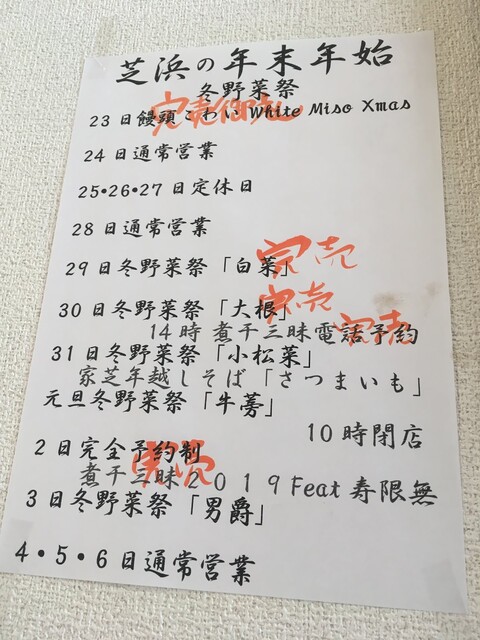 芝浜の年末年始
冬野菜祭
完売御礼
23日饅頭こわい White Miso Xmas
24日通常営業
25•26•27日定休日
28日通常営業
29日冬野菜祭「白菜」
完売
30日冬野菜祭「大根」
完売
14時煮干三昧電話予約
完売
31日冬野菜祭「小松菜」
家芝年越しそば「さつまいも」
元旦冬野菜祭「牛蒡」
10時閉店
2日完全予約制
完売
煮干三昧2019 Feat 寿限無
3日冬野菜祭「男爵」
4・5・6日通常営業